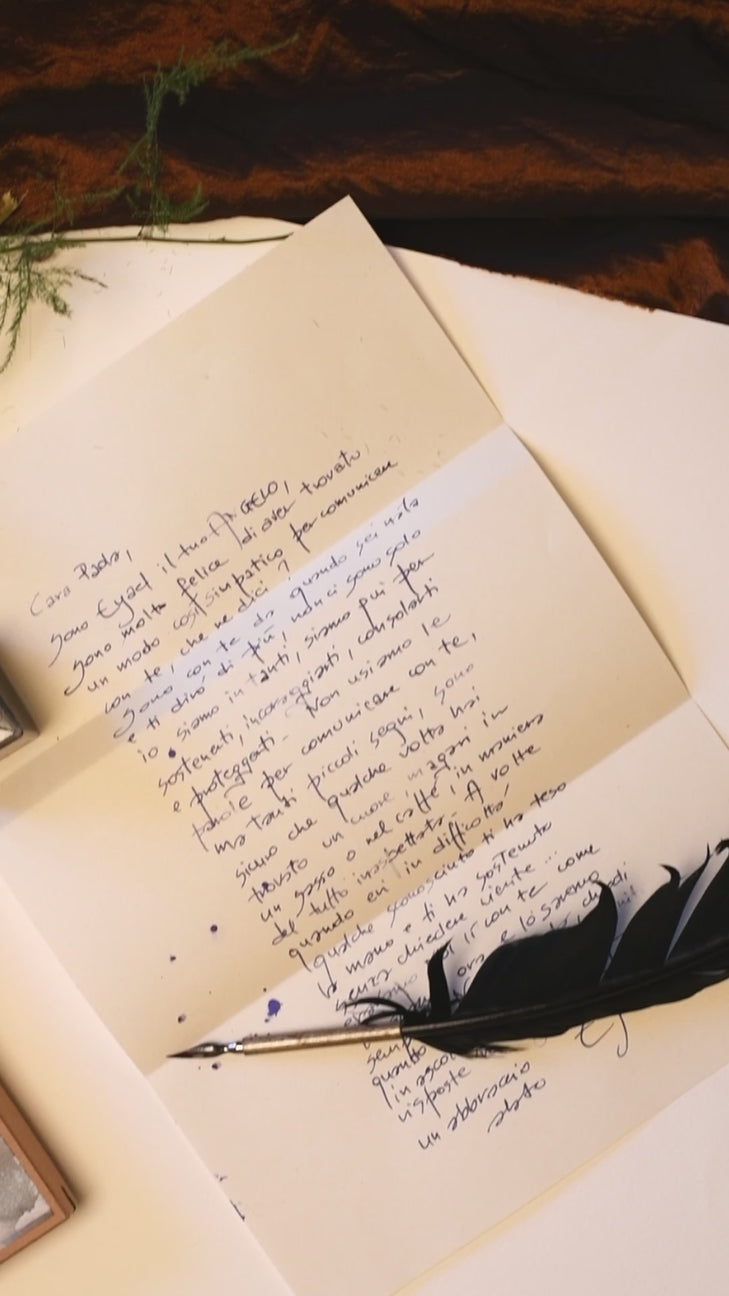 Cara Paola,
sono Eyael il tuo ANGELO,
sono molto felice di aver trovato,
un modo così simpatico per comunicare
con te, che ne dici?
Sono con te da quando sei nata
e ti dirò di più, non ci sono solo
io siamo in tanti, siamo qui per
sostenerti, incoraggianti, consolarti
e proteggerti - Non usiamo le
parole per comunicare con te,
ma tanti piccoli segni, sono
sicuro che qualche volta hai
trovato un cuore magari in
un sasso o nel caffè, in maniera
del tutto inaspettata - A volte
quando eri in difficoltà
qualche sconosciuto ti ha teso
la mano e ti ha sostenuto
senza chiedere niente ...
eravamo lì con te come
ora e lo saremo
semp chiedi
quando
in asco
risposte
un abbraccio
alato
Ey